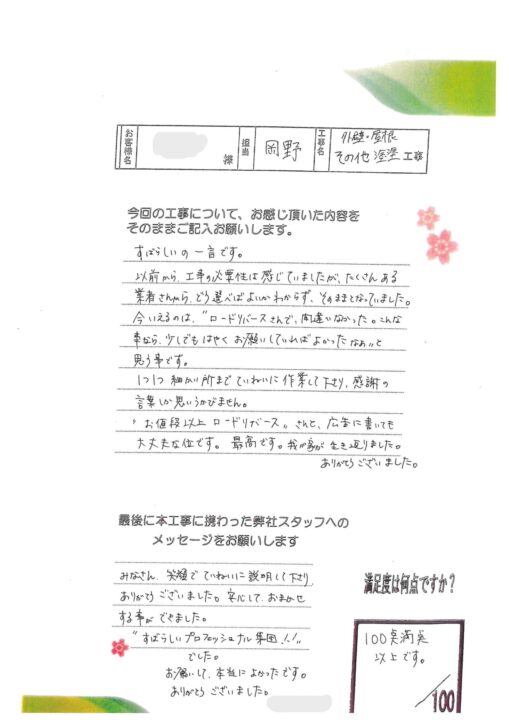 お客様名 様 担当 岡野 工事名 外壁・屋根
その他塗塗工事
今回の工事について、お感じ頂いた内容を
そのままご記入お願いします。
すばらしいの一言です。
以前から、工事の必要性は感じていましたが、たくさんある
業者さんから、どう選べばよいかわからず、そのままとなっていました。
今いえるのは、"ロードリバースさんで、間違いなかった。こんな
事なら、少しでもはやくお願いしていればよかったなぁ"と
思う事です。
1つ1つ細かい所までていねいに作業して下さり、感謝の
言葉しか思いうかびません。
"お値段以上ロードリバース"さんと、広告に書いても
大丈夫な位です。最高です。我が家が生き返りました。
ありがとうございました。
最後に本工事に携わった弊社スタッフへの
メッセージをお願いします
みなさん、笑顔でていねいに説明して下さり、
ありがとうございました。安心して、おまかせ
する事ができました。
"すばらしいプロフェッショナル集団!!"
でした。
お願いして、本当によかったです。
ありがとうございました。
満足度は何点ですか?
100点満点
以上です。
/100